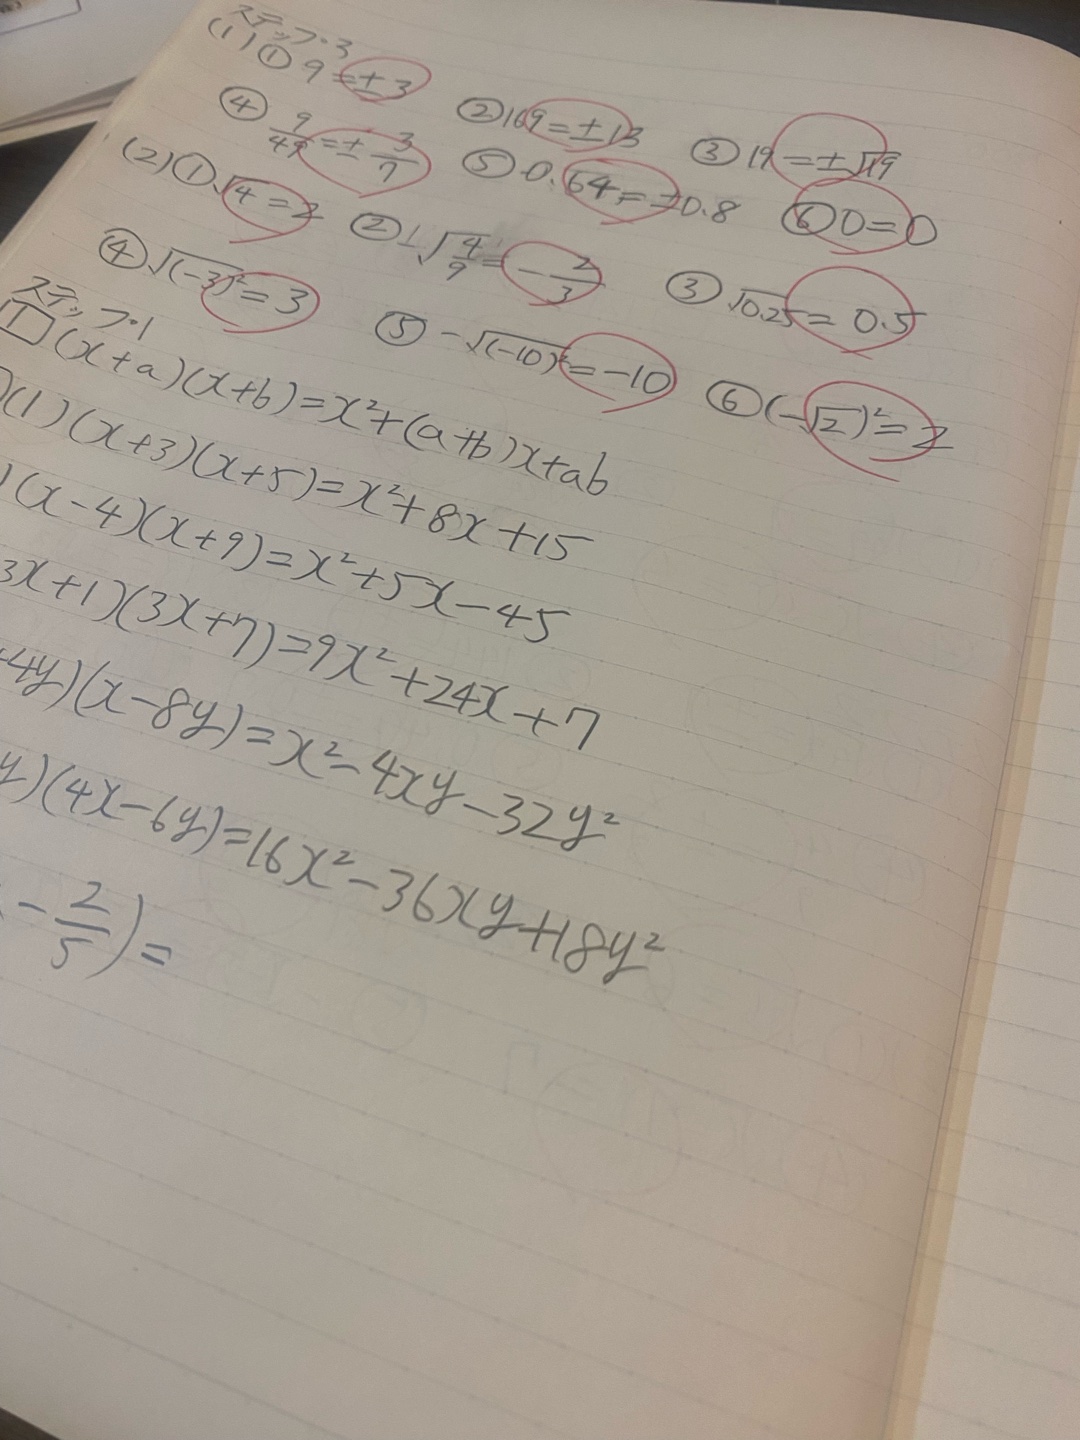 ステップ・3
(1)① 9=±3 ②169=±13 ③19=±√19
④ 9/49=±3/7 ⑤0.64=±0.8 ⑥0=0
(2)①√4=2 ②-√4/9=-2/3 ③√0.25=0.5
④√(-3)²=3 ⑤-√(-10)²=-10 ⑥(-√2)²=2
ステップ・1
1 (x+a)(x+b)=x²+(a+b)x+ab
(1)(x+3)(x+5)=x²+8x+15
)(x-4)(x+9)=x²+5x-45
3x+1)(3x+7)=9x²+24x+7
+4y)(x-8y)=x²-4xy-32y²
y)(4x-6y)=16x²-36xy+18y²
-2/5)=